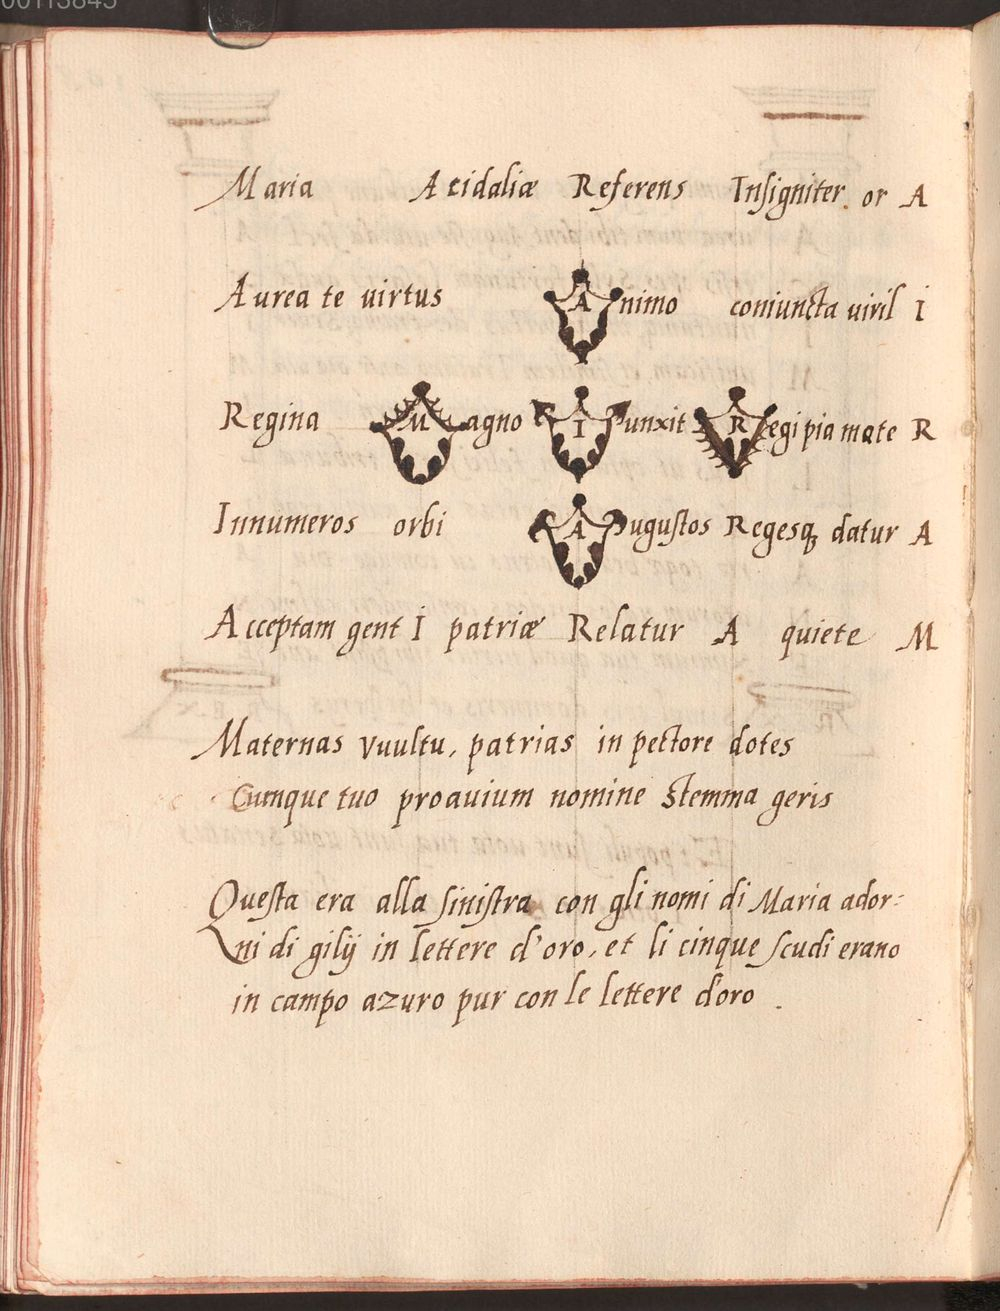 00113845
Maria Acidaliæ Referens Insigniter or A
Aurea te uirtus Animo coniuncta uiril I
Regina Magno Iunxit Regi pia mate R
Innumeros orbi Augustos Regesq datur A
Acceptam gent I patriæ Relatur A quiete M
Maternas vuultu, patrias in pectore dotes
Cumque tuo proauium nomine stemma geris
Questa era alla sinistra con gli nomi di Maria ador-
ni di gilij in lettere d'oro, et li cinque scudi erano
in campo azuro pur con le lettere d'oro.